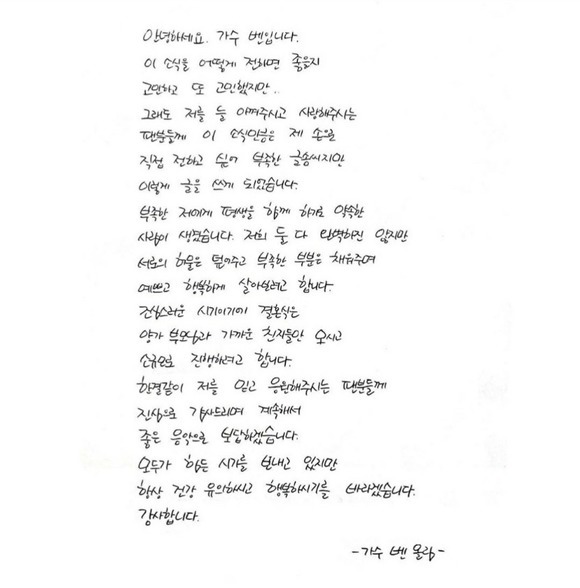 안녕하세요. 가수 벤입니다.
이 소식을 어떻게 전하면 좋을지
고민하고 또 고민했지만.
그래도 저를 늘 아껴주시고 사랑해주시는
팬분들께 이 소식만큼은 제 손으로
직접 전하고 싶어 부족한 글솜씨지만
이렇게 글을 쓰게 되었습니다.
부족한 저에게 평생을 함께 하기로 약속한
사람이 생겼습니다. 저희 둘 다 완벽하진 않지만
서로의 허물은 덮어주고 부족한 부분은 채워주며
예쁘고 행복하게 살아보려고 합니다.
조심스러운 시기이기에 결혼식은
양가 부모님과 가까운 친지들만 모시고
소규모로 진행하려고 합니다.
한결같이 저를 믿고 응원해주시는 팬분들께
진심으로 감사드리며 계속해서
좋은 음악으로 보답하겠습니다.
모두가 힘든 시기를 보내고 있지만
항상 건강 유의하시고 행복하시기를 바라겠습니다.
감사합니다.
-가수 벤 올림-